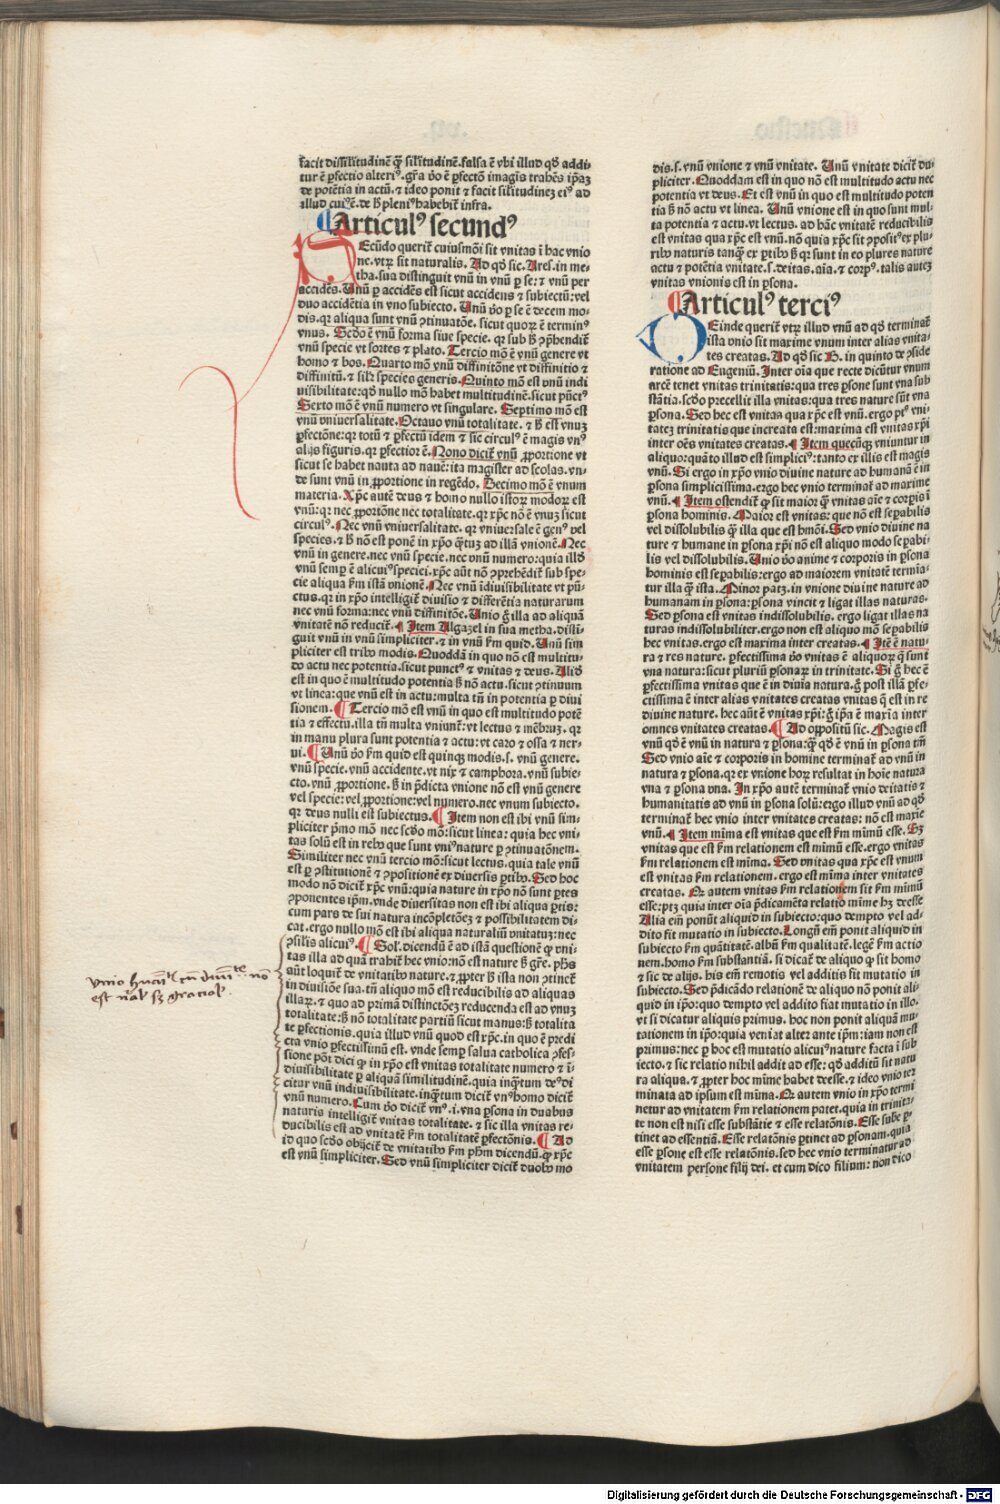 facit dissilitudinē ꝙ̄ silitudinē. falsa ē vbi illud qd̄ addi-
tur ē ꝑfectio alteriꝰ. gr̄a v̄o ē ꝑfectō imagis trahēs ip̄aꝫ
de potētia in actū. ⁊ ideo ponit ⁊ facit silitudineꝫ eiꝰ ad
illud cuiꝰ ē. de h̄ pleniꝰ habebit̄ infra.
Articulꝰ secundꝰ
SEcūdo querit̄ cuiusmōi sit vnitas ī hac vnio
ne. vtꝝ sit naturalis. Ad qd̄ sic. Ares. in me-
tha. sua distinguit vnū in vnū ꝑ se: ⁊ vnū per
accidēs. Vnū ꝑ accidēs est sicut accidens ⁊ subiectū: vel
duo accidētia in vno subiecto. Vnū v̄o ꝑ se ē decem mo-
dis. qꝛ aliqua sunt vnū ꝯtinuatōe. sicut quoꝝ ē terminꝰ
vnus. Scd̄o ē vnū forma siue specie. qꝛ sub h̄ ꝯphendit̄
vnū specie vt sortes ⁊ plato. Tercio mō ē vnū genere vt
homo ⁊ bos. Quarto mō vnū diffinitōne vt diffinitio ⁊
diffinitū. ⁊ silr̄ species generis. Quinto mō est vnū indi
uisibilitate: qd̄ nullo mō habet multitudinē. sicut pūctꝰ
Sexto mō ē vnū numero vt singulare. Septimo mō est
vnū vniuersalitate. Octauo vnū totalitate. ⁊ h̄ est vnuꝫ
ꝑfectōne: qꝛ totū ⁊ ꝑfectū idem ⁊ sic circulꝰ ē magis vnꝰ
alijs figuris. qꝛ ꝑfectior ē. Nono dicit̄ vnū ꝓportione vt
sicut se habet nauta ad nauē: ita magister ad scolas. vn-
de sunt vnū in ꝓportione in regēdo. Decimo mō ē vnum
materia. Xp̄c autē deus ⁊ homo nullo istoꝝ modoꝝ est
vnū: qꝛ nec ꝓportōne nec totalitate. qꝛ xp̄c nō ē vnuꝫ sicut
circulꝰ. Nec vnū vniuersalitate. qꝛ vniuersale ē genꝰ vel
species. ⁊ h̄ nō est ponē in xp̄o q̄tuꝫ ad illā vnionē. Nec
vnū in genere. nec vnū specie. nec vnū numero: quia illd̄
vnū semꝑ ē alicuiꝰ speciei. xp̄c aūt nō ꝯprehēdit̄ sub spe-
cie aliqua ẜm istā vnionē. Nec vnū īdiuisibilitate vt pū-
ctus. qꝛ in xp̄o intelligit̄ diuisio ⁊ differētia naturarum
nec vnū forma: nec vnū diffinitōe. Vnio ḡ illa ad aliquā
vnitatē nō reducit̄. ¶ Item Algazel in sua metha. disti-
guit vnū in vnū simpliciter. ⁊ in vnū ẜm quid. Vnū sim
pliciter est tribꝰ modis. Quoddā in quo nō est multitu-
do actu nec potentia. sicut punctꝰ ⁊ vnitas ⁊ deus. Aliud̄
est in quo ē multitudo potentia h̄ nō actu. sicut ꝯtinuum
vt linea: que vnū est in actu: multa tn̄ in potentia ꝑ diui
sionem. ¶ Tercio mō est vnū in quo est multitudo potē
tia ⁊ effectu. illa tn̄ multa vniunt̄: vt lectus ⁊ mēbruꝫ. qꝛ
in manu plura sunt potentia ⁊ actu: vt caro ⁊ ossa ⁊ ner-
ui. ¶ Vnū v̄o ẜm quid est quinqꝫ modis. s. vnū genere.
vnū specie. vnū accidente. vt nix ⁊ camphora. vnū subie-
cto. vnū ꝓportione. h̄ in p̄dicta vnione nō est vnū genere
vel specie: vel ꝓportione: vel numero. nec vnum subiecto.
qꝛ deus nulli est subiectus. ¶ Item non est ibi vnū sim-
pliciter p̄mo mō nec scd̄o mō: sicut linea: quia hec vni-
tas solū est in rebꝰ que sunt vniꝰ nature ꝑ ꝯtinuatōnem.
Similiter nec vnū tercio mō: sicut lectus. quia tale vnū
est ꝑ ꝯstitutionē ⁊ ꝯpositionē ex diuersis ꝑtibꝰ. Sed hoc
modo nō dicit̄ xp̄c vnū: quia nature in xp̄o nō sunt ꝑtes
ꝯponentes ip̄m. vnde diuersitas non est ibi aliqua ꝑtis:
cum pars de sui natura incōpletōeꝫ ⁊ possibilitatem di-
cat. ergo nullo mō est ibi aliqua naturaliū vnitatuꝫ: nec
ꝯsilis alicuiꝰ. ¶ Sol. dicendū ē ad istā questionē ꝙ vni-
tas illa ad quā trahit̄ hec vnio: nō est nature h̄ gr̄e. ph̄s
aūt loquit̄ de vnitatibꝰ nature. ⁊ ꝓpter h̄ ista non ꝯtinet̄
in diuisiōe sua. tn̄ aliquo mō est reducibilis ad aliquas
illaꝝ. ⁊ quo ad primā distinctōeꝫ reducenda est ad vnuꝫ
totalitate: h̄ nō totalitate partiū sicut manus: h̄ totalita
te ꝑfectionis. quia illud vnū quod est xp̄c. in quo ē predi
cta vnio ꝑfectissimū est. vnde semꝑ salua catholica ꝯfes-
sione pōt dici ꝙ in xp̄o est vnitas totalitate numero ⁊ ī-
diuisibilitate ꝑ aliquā similitudinē. quia inq̄tum deꝰ di
citur vnū indiuisibilitate. inq̄tum dicit̄ vnꝰ homo dicit̄
vnū numero. Cum v̄o dicit̄ vnꝰ. i. vna ꝑsona in duabus
naturis intelligit̄ vnitas totalitate. ⁊ sic illa vnitas re-
ducibilis est ad vnitatē ẜm totalitatē ꝑfectōnis. ¶ Ad
id quo scd̄o obijcit̄ de vnitatibꝰ ẜm ph̄m dicendū. ꝙ xp̄c
est vnū simpliciter. Sed vnū simpliciter dicit̄ duobꝰ mo
vnio humātꝭ cū diuītate nō
est nālꝭ sꝫ gracialꝭ.
dis. s. vnū vnione ⁊ vnū vnitate. Vnū vnitate dicit̄ du-
pliciter. Quoddam est in quo nō est multitudo actu nec
potentia vt deus. Et est vnū in quo est multitudo poten
tia h̄ nō actu vt linea. Vnū vnione est in quo sunt mul-
ta potentia ⁊ actu. vt lectus. ad hāc vnitatē reducibilis
est vnitas qua xp̄c est vnū. nō quia xp̄c sit ꝯpositꝰ ex plu-
ribꝰ naturis tanqꝫ ex ꝑtibꝰ h̄ qꝛ sunt in eo plures nature
actu ⁊ potētia vnitate. s. deitas. aīa. ⁊ corpꝰ. talis auteꝫ
vnitas vnionis est in ꝑsona.
Articulꝰ terciꝰ
DEinde querit̄ vtꝝ illud vnū ad qd̄ terminat̄
ista vnio sit maxime vnum inter alias vnita-
tes creatas. Ad qd̄ sic B. in quinto de ꝯside
ratione ad Eugeniū. Inter oīa que recte dicūtur vnum
arcē tenet vnitas trinitatis: qua tres ꝑsone sunt vna sub
stātia. scd̄o precellit illa vnitas: qua tres nature sūt vna
ꝑsona. Sed hec est vnitas qua xp̄c est vnū. ergo pꝰ vni-
tateꝫ trinitatis que increata est: maxima est vnitas xp̄i
inter oēs vnitates creatas. ¶ Item quecūqꝫ vniuntur in
aliquo: quāto illud est simpliciꝰ: tanto ex illis est magis
vnū. Si ergo in xp̄o vnio diuine nature ad humanā ē in
ꝑsona simplicissima. ergo hec vnio terminat̄ ad maxime
vnū. ¶ Item ostendit̄ ꝙ sit maior ꝙ̄ vnitas aīe ⁊ corpis ī
ꝑsona hominis. Maior est vnitas: que nō est seꝑabilis
vel dissolubilis ꝙ̄ illa que est hmōi. Sed vnio diuine na
ture ⁊ humane in ꝑsona xp̄i nō est aliquo modo seꝑabi-
lis vel dissolubilis. Vnio v̄o anime ⁊ corporis in ꝑsona
hominis est seꝑabilis: ergo ad maiorem vnitatē termīa-
tur illa ꝙ̄ ista. Minor patꝫ. in vnione diuine nature ad
humanam in ꝑsona: ꝑsona vincit ⁊ ligat illas naturas.
Sed ꝑsona est vnitas indissolubilis. ergo ligat illas na
turas indissolubiliter. ergo non est aliquo mō seꝑabilis
hec vnitas. ergo est maxima inter creatas. ¶ Itē ē natu-
ra ⁊ res nature. ꝑfectissima v̄o vnitas ē aliquoꝝ ꝙ̄ sunt
vna natura: sicut pluriū ꝑsonaꝝ in trinitate. Si ḡ hec ē
ꝑfectissima vnitas que ē in diuīa natura. ḡ post illā ꝑfe-
ctissima ē inter alias vnitates creatas vnitas ꝙ̄ est in re
diuine nature. hec aūt ē vnitas xp̄i: ḡ ip̄a ē maxīa inter
omnes vnitates creatas. ¶ Ad oppositū sic. Magis est
vnū qd̄ ē vnū in natura ⁊ ꝑsona: ꝙ̄ qd̄ ē vnū in ꝑsona tm̄
Sed vnio aīe ⁊ corporis in homine terminat̄ ad vnū in
natura ⁊ ꝑsona. qꝛ ex vnione hoꝝ resultat in hoīe natura
vna ⁊ ꝑsona vna. In xp̄o autē terminat̄ vnio deitatis ⁊
humanitatis ad vnū in ꝑsona solū: ergo illud vnū ad qd̄
terminat̄ hec vnio inter vnitates creatas: nō est maxie
vnū. ¶ Item mīma est vnitas que est ẜm mīmū esse. Sꝫ
vnitas que est ẜm relationem est mīmū esse. ergo vnitas
ẜm relationem est mīma. Sed vnitas qua xp̄c est vnum
est vnitas ẜm relationem. ergo est mīma inter vnitates
creatas. Qꝛ autem vnitas ẜm relationem sit ẜm mīmū
esse: ptꝫ quia inter oīa p̄dicamēta relatio mīme hꝫ de esse
Alia em̄ ponūt aliquid in subiecto: quo dempto vel ad-
dito fit mutatio in subiecto. Longū em̄ ponit aliquid in
subiecto ẜm quātitatē. albū ẜm qualitatē. legē ẜm actio
nem. homo ẜm substantiā. si dicat̄ de aliquo ꝙ sit homo
⁊ sic de alijs. his em̄ remotis vel additis fit mutatio in
subiecto. Sed p̄dicādo relationē de aliquo nō ponit ali-
quid in ip̄o: quo dempto vel addito fiat mutatio in illo.
vt si dicatur aliquis primus. hoc non ponit aliquā mu-
tationem in ip̄o: quia veniat alter ante ip̄m: iam non est
primus: nec ꝑ hoc est mutatio alicuiꝰ nature facta ī sub
iecto. ⁊ sic relatio nihil addit ad esse: qd̄ additū sit natu
ra aliqua. ⁊ ꝓpter hoc mīme habet de esse. ⁊ ideo vnio ter
minata ad ipsum est mīma. Qꝛ autem vnio in xp̄o termi
netur ad vnitatem ẜm relationem patet. quia in trinita-
te non est nisi esse substātie ⁊ esse relatōnis. Esse sube ꝑ-
tinet ad essentiā. Esse relatōnis ꝑtinet ad ꝑsonam. quia
esse ꝑsone est esse relatōnis. sed hec vnio terminatur ad
vnitatem persone filij dei. et cum dico filium: non dico
Digitalisierung gefördert durch die Deutsche Forschungsgemeinschaft - DFG